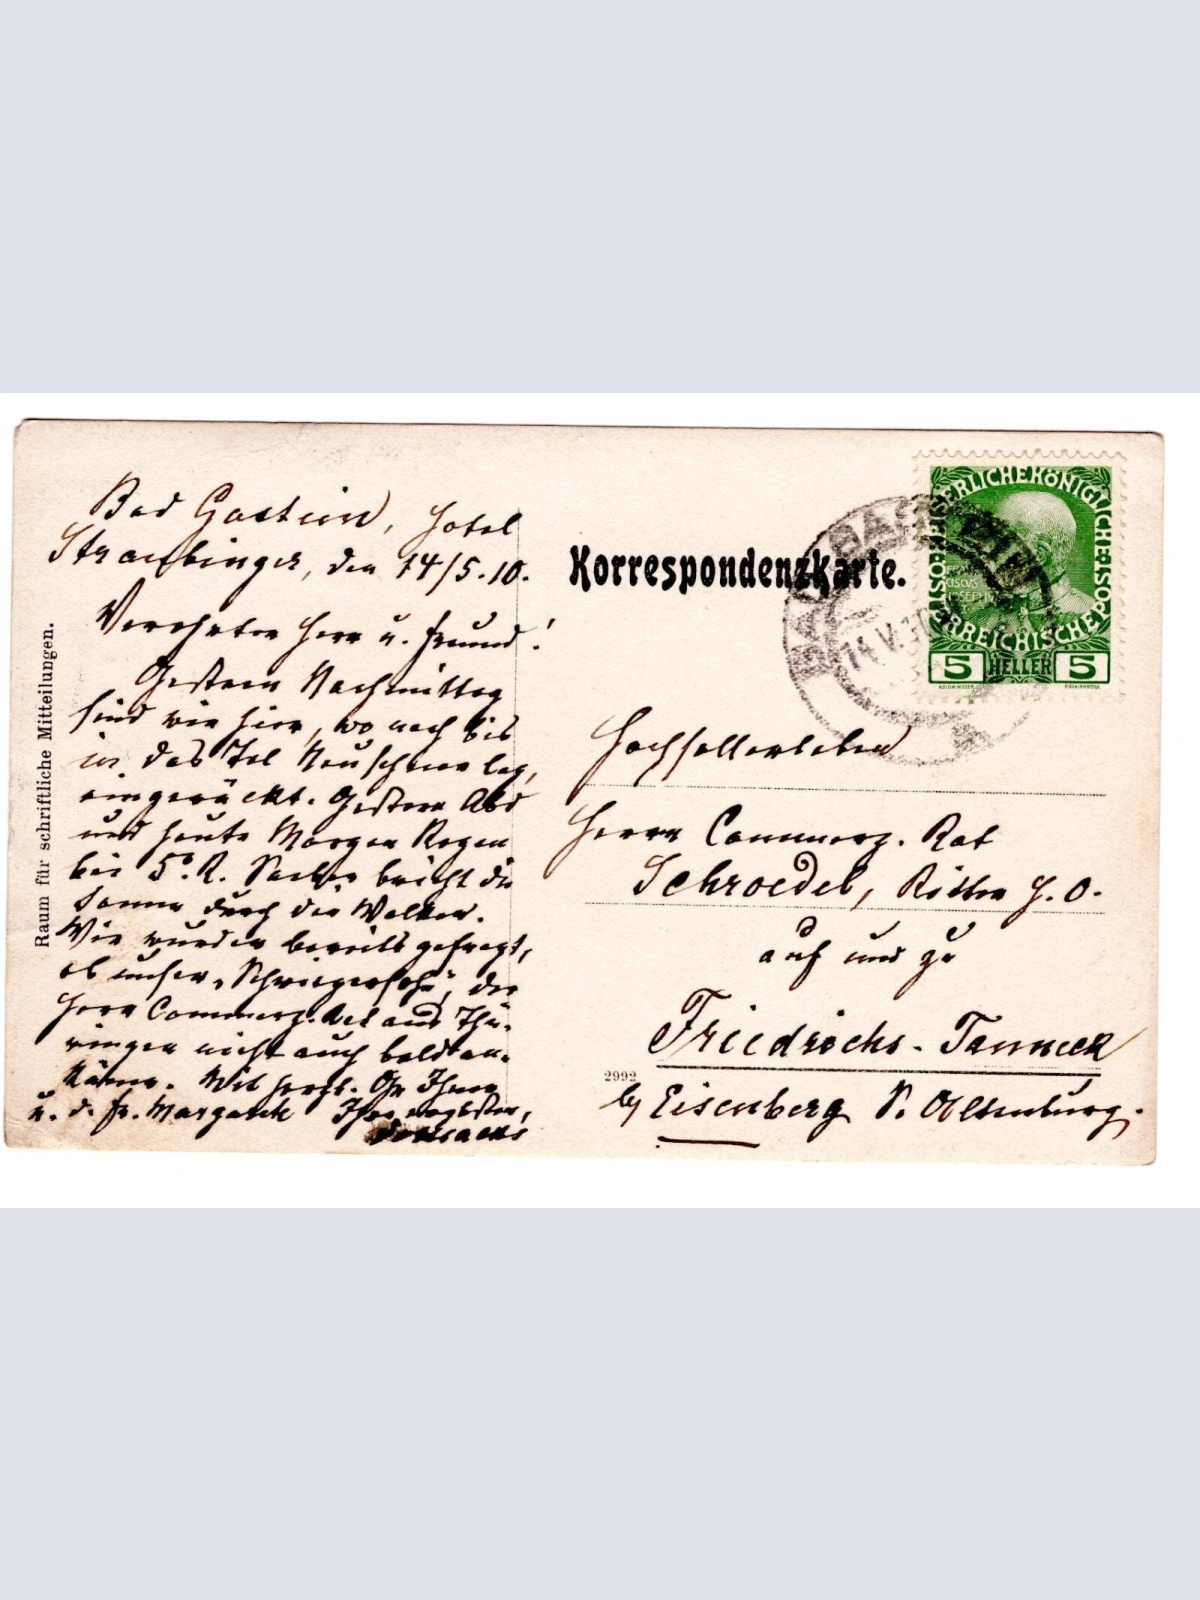 Bad Gastein, Hotel
Straubinger, den 14/5.10.
Verehrter Herr u. Freund!
Gestern Nachmittag
sind wir hier, wo noch bis
in das Tal Neuschnee lag,
eingerückt. Gestern Abd
und heute Morgen Regen
bei 5° R. Soeben bricht die
Sonne durch die Wolken.
Wir wurden bereits gefragt,
ob unser „Schwiegersohn", der
Herr Commerz. Rat aus Thü-
ringen nicht auch bald an-
käme. Mit herzl. Gr Ihnen
u. d. Fr. Margareth Ihre
Raum für schriftliche Mitteilungen.
Korrespondenzkarte.
KAISERLICHE KÖNIGLICHE
ÖSTERREICHISCHE POST
FRAN
CISCVS
IOSEPH I
5 HELLER 5
BAD GASTEIN
14 V 10
Hochfellerleben
Herrn Commerz. Rat
Schroedel, Ritter H. O.
auf und zu
Friedrichs-Tanneck
2992
by Eisenberg S. Altenburg.